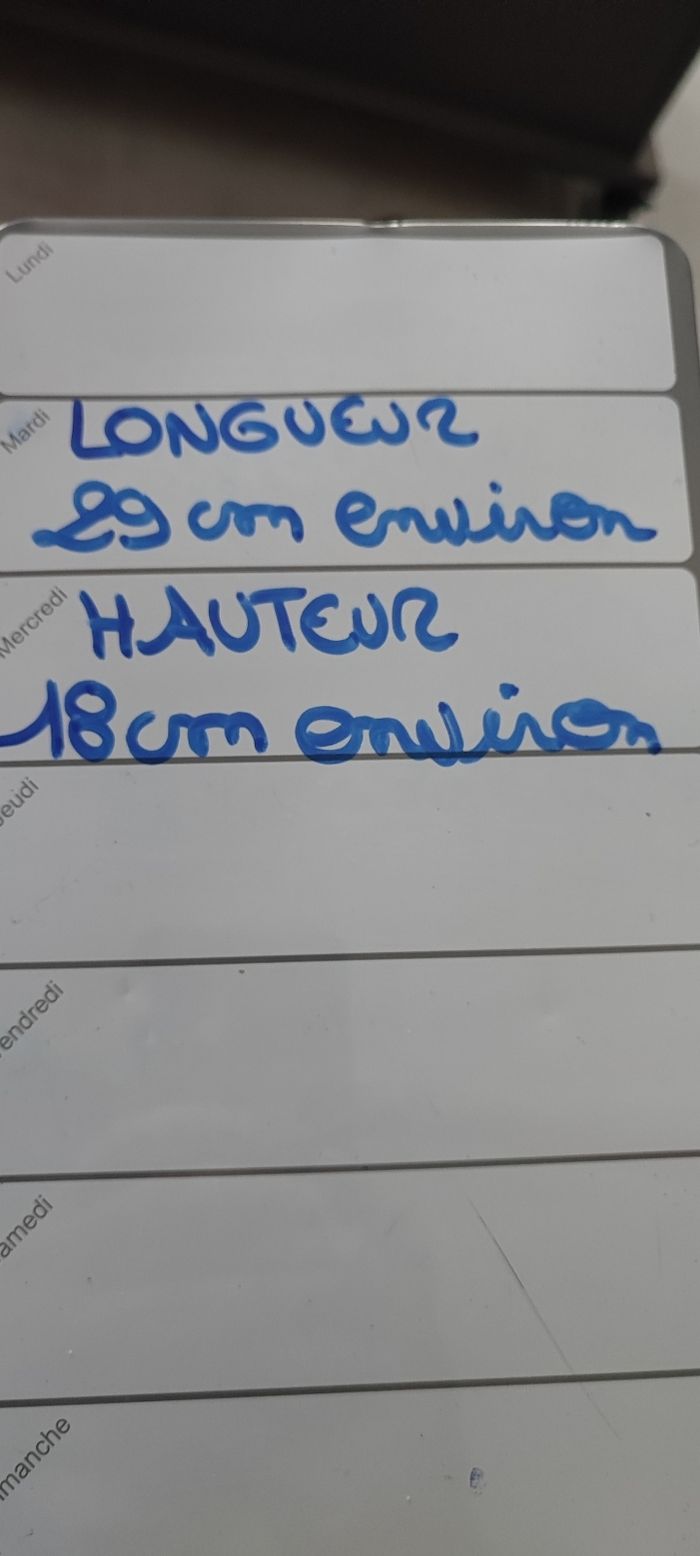 Lundi
Mardi
LONGUEUR
29 cm environ
Mercredi
HAUTEUR
18 cm environ
Jeudi
endredi
amedi
manche